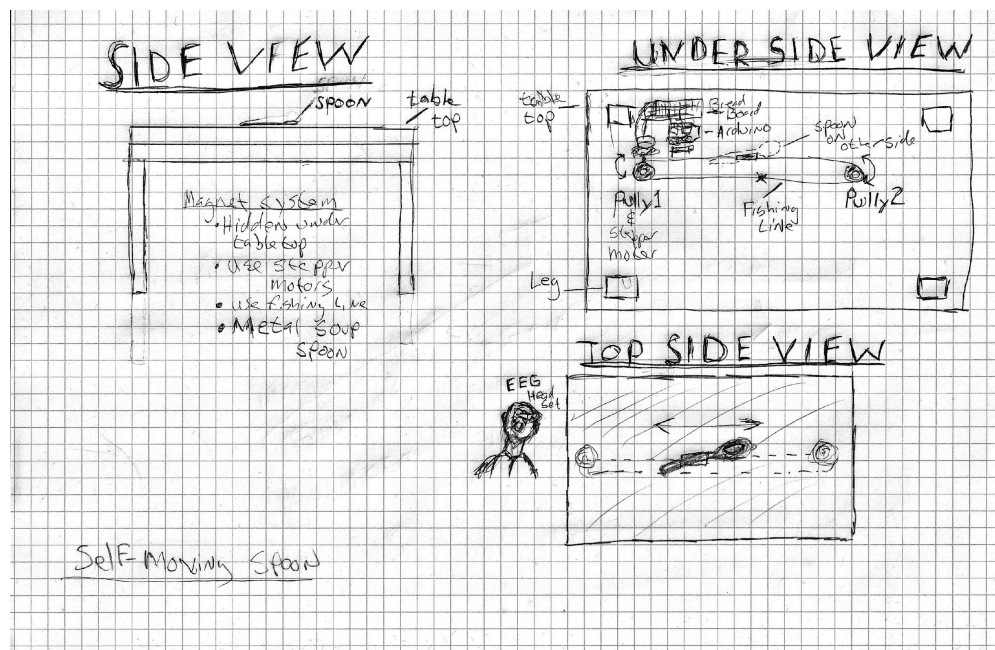 SIDE VIEW
SPOON
table
top
Magnet system
• Hidden undr
tabletop
• Use steppr
motors
• use fishing Line
• Metal Soup
Spoon
UNDER SIDE VIEW
table
top
Bread
Board
Arduino
spoon
on
other side
Pully1
&
Stepper
moter
Fishing
Line
Pully2
Leg
TOP SIDE VIEW
EEG
Head
Set
Self-Moving Spoon